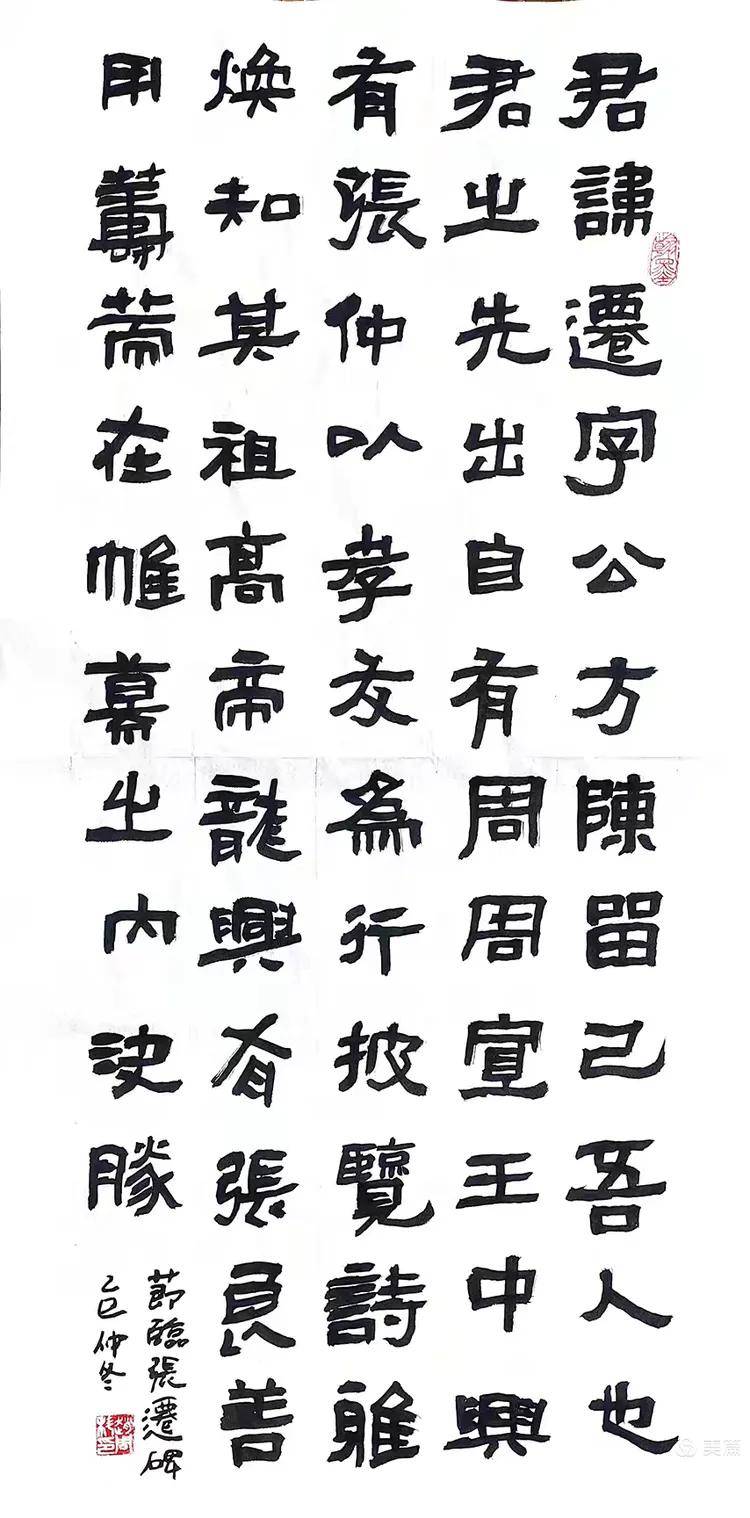 君諱遷字公方陳留己吾人也
君之先出自有周周宣王中興
有張仲以孝友為行披覽詩雅
煥知其祖高帝龍興有張良善
用籌策在帷幕之內決勝
節臨張遷碑
乙巳仲冬
美篇